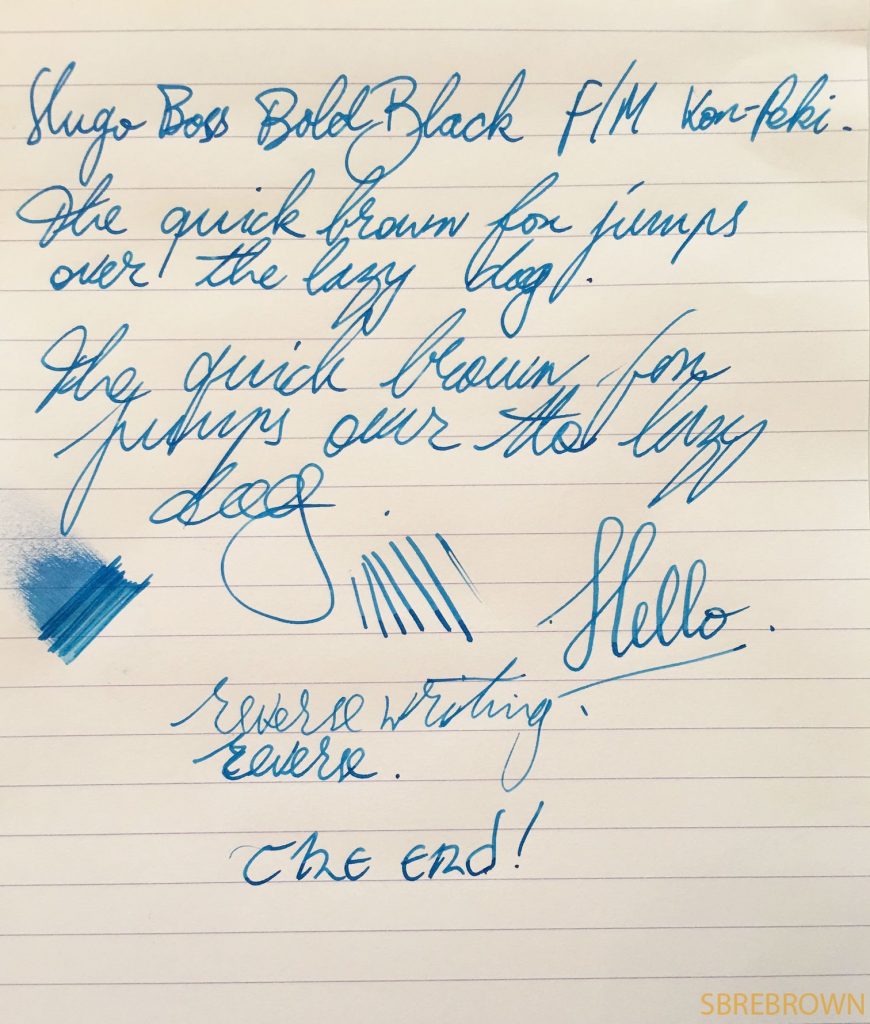 Hugo Boss Bold Black F/M Kon-Peki.
The quick brown fox jumps
over the lazy dog.
The quick brown fox
jumps over the lazy
dog.
Hello.
reverse writing.
reverse.
The End!
SBREBROWN